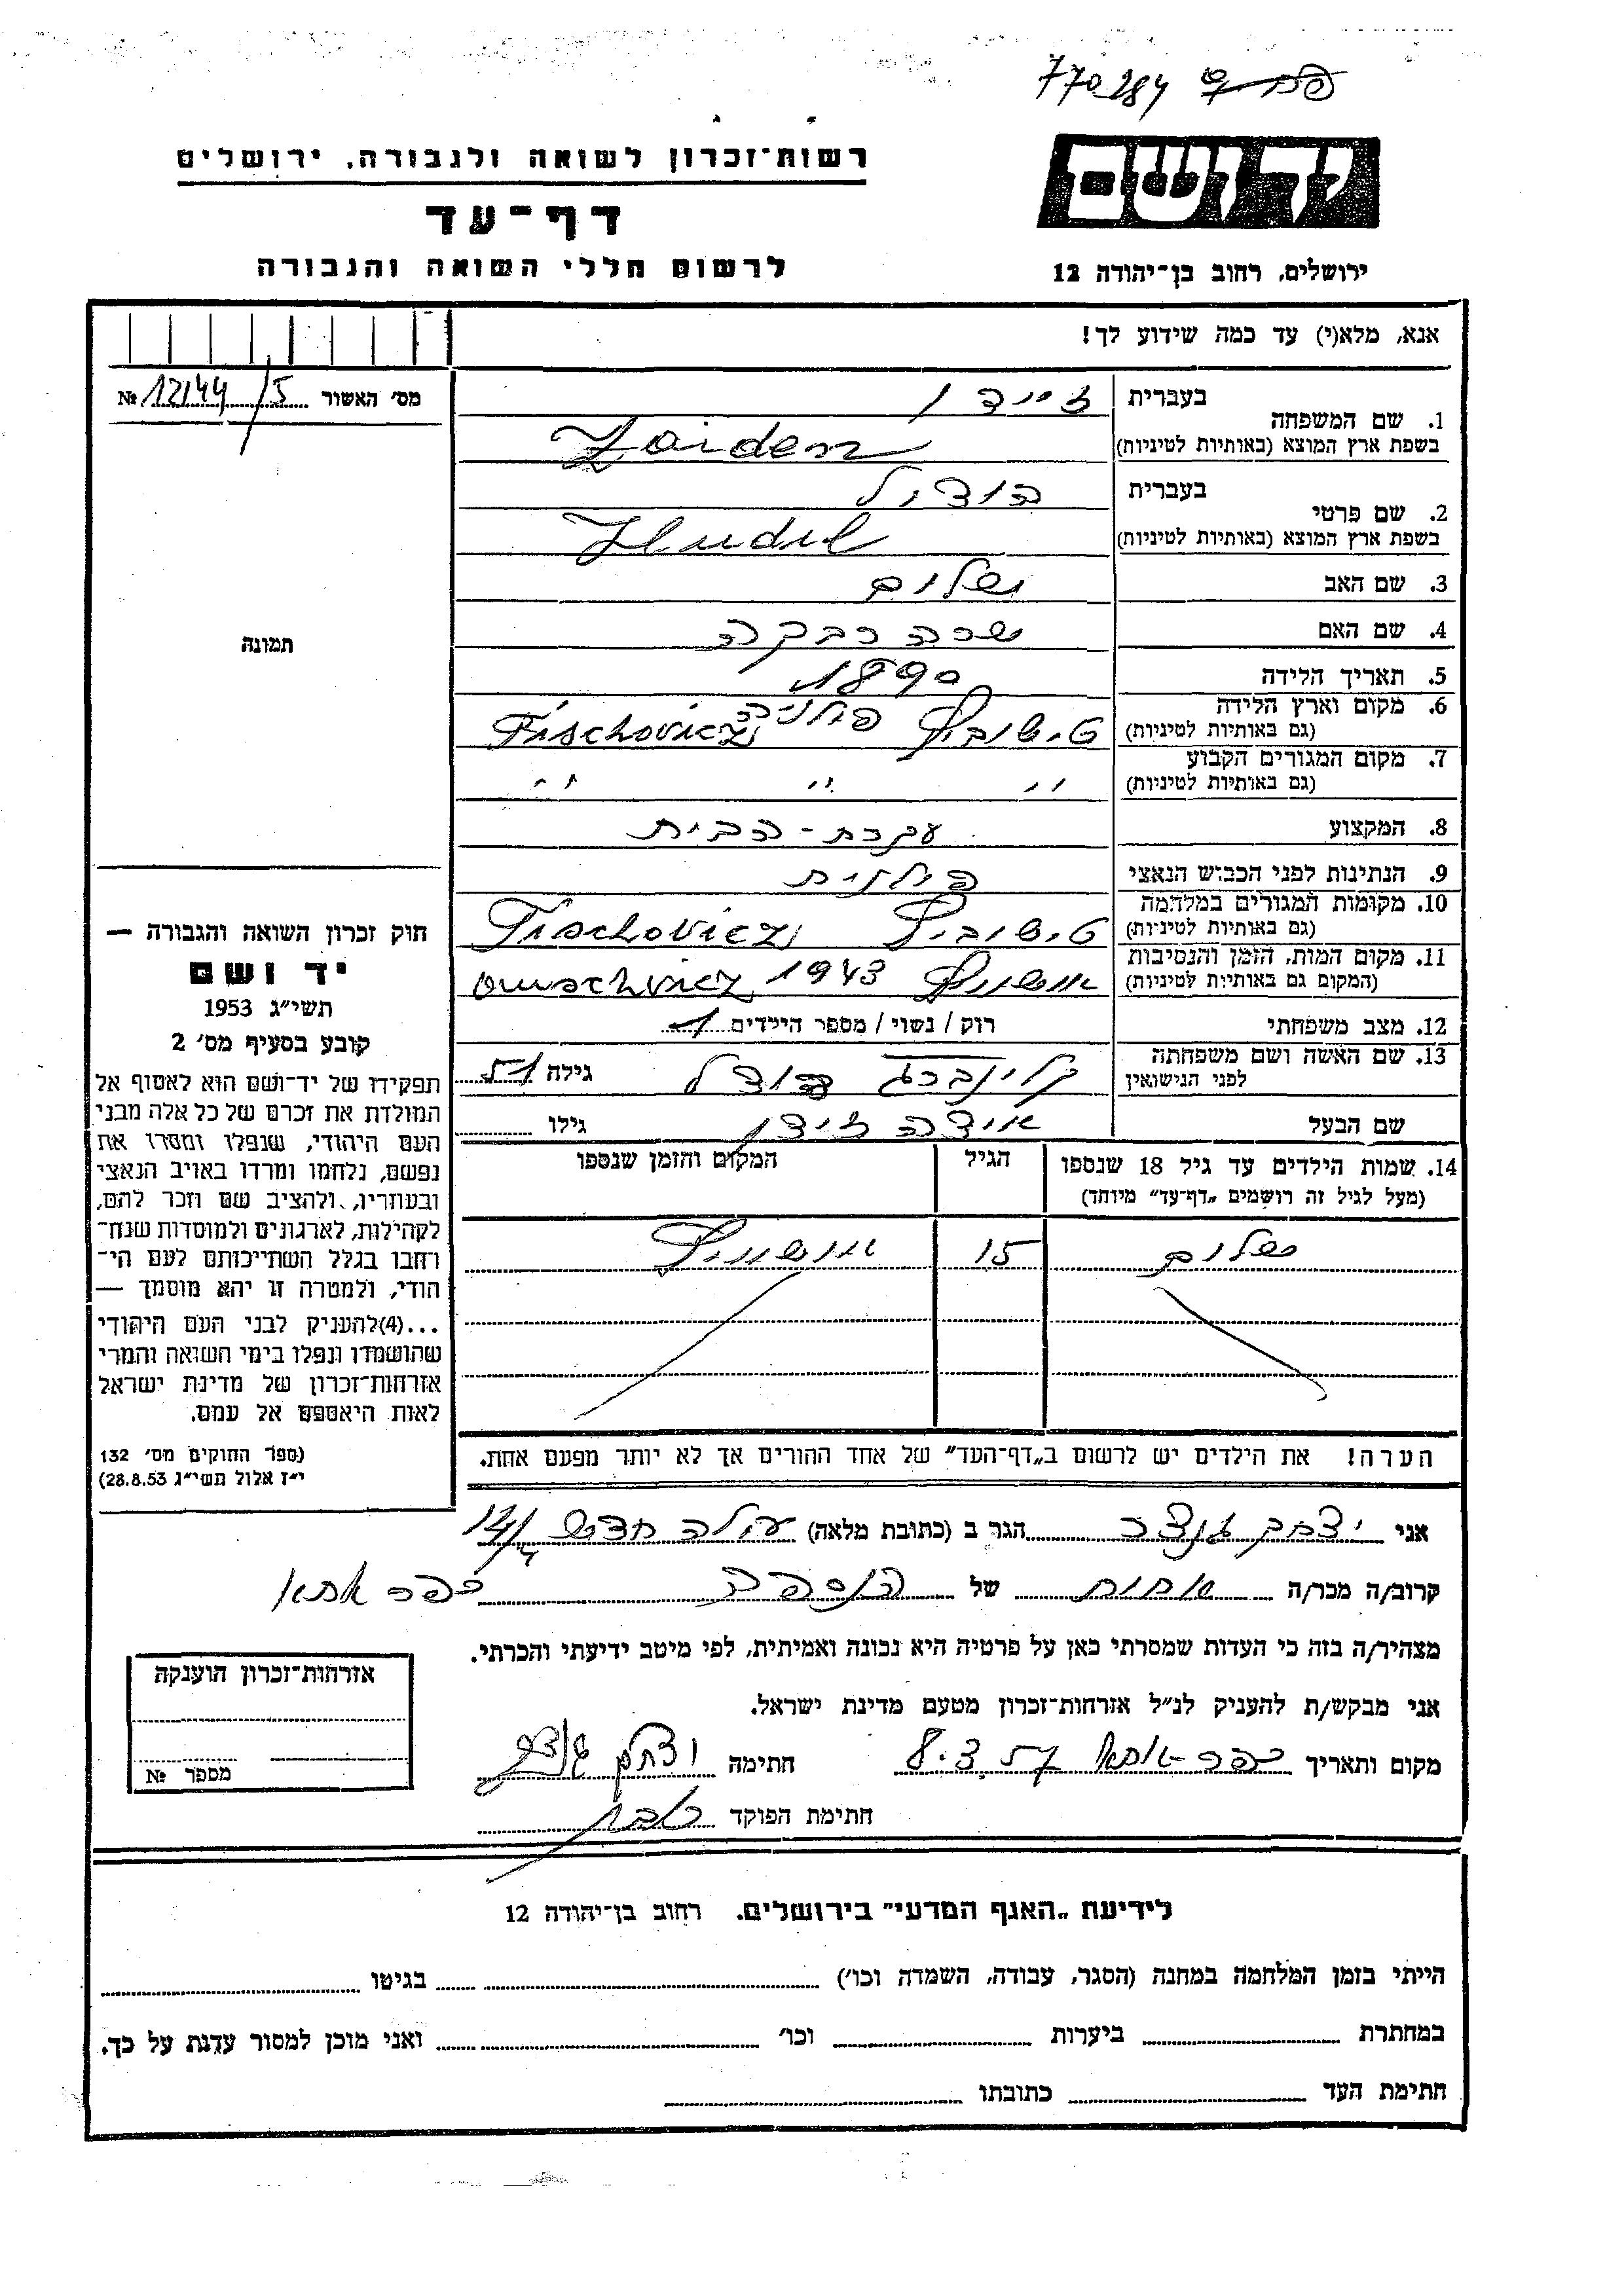 770284
רשות־זכרון לשואה ולגבורה, ירושלים
יד ושם
דף־עד
לרשום חללי השואה והגבורה
ירושלים, רחוב בן־יהודה 12
אנא, מלא(י) עד כמה שידוע לך!
מס׳ האשור 12144/5 №
1. שם המשפחה
בעברית זיידן
בשפת ארץ המוצא (באותיות לטיניות) Zaiden
2. שם פרטי
בעברית הודיל
בשפת ארץ המוצא (באותיות לטיניות) Hudil
3. שם האב שלום
4. שם האם שרה רבקה
5. תאריך הלידה 1890
6. מקום וארץ הלידה
(גם באותיות לטיניות) טישוביץ פולניה Tischovicz
7. מקום המגורים הקבוע
(גם באותיות לטיניות) " " "
8. המקצוע עקרת-הבית
9. הנתינות לפני הכבוש הנאצי פולנית
10. מקומות המגורים במלחמה
(גם באותיות לטיניות) טישוביץ Tischovicz
11. מקום המות, הזמן והנסיבות
(המקום גם באותיות לטיניות) אושוויץ 1943 Ouschvicz
12. מצב משפחתי רוק / נשוי / מספר הילדים 1
13. שם האשה ושם משפחתה
לפני הנישואין קליינברג הודל גילה 51
שם הבעל זידן גילו
14. שמות הילדים עד גיל 18 שנספו
(מעל לגיל זה רושמים „דף־עד״ מיוחד)
הגיל
המקום והזמן שנספו
שלום 15 אושוויץ
תמונה
חוק זכרון השואה והגבורה —
יד ושם
תשי״ג 1953
קובע בסעיף מס׳ 2
תפקידו של יד־ושם הוא לאסוף אל
המולדת את זכרם של כל אלה מבני
העם היהודי, שנפלו ומסרו את
נפשם, נלחמו ומרדו באויב הנאצי
ובעוזריו, ולהציב שם וזכר להם,
לקהילות, לארגונים ולמוסדות שנח־
רחבו בגלל השתייכותם לעם הי־
הודי, ולמטרה זו יהא מוסמך —
...(4)להעניק לבני העם היהודי
שהושמדו ונפלו בימי השואה והמרי
אזרחות־זכרון של מדינת ישראל
לאות היאספם אל עמם.
(ספר החוקים מס׳ 132
י״ז אלול תשי״ג 28.8.53)
הערה! את הילדים יש לרשום ב„דף־העד״ של אחד ההורים אך לא יותר מפעם אחת.
אני יצחק הגר ב (כתובת מלאה) עולה חדש
קרוב/ה מכר/ה אחות של הנספה כפר אתא
מצהיר/ה בזה כי העדות שמסרתי כאן על פרטיה היא נכונה ואמיתית, לפי מיטב ידיעתי והכרתי.
אני מבקש/ת להעניק לנ״ל אזרחות־זכרון מטעם מדינת ישראל.
מקום ותאריך כפר אתא חתימה יצחק
חתימת הפוקד
אזרחות־זכרון הוענקה
מספר №
לידיעת „האגף המדעי״ בירושלים, רחוב בן־יהודה 12
הייתי בזמן המלחמה במחנה (הסגר, עבודה, השמדה וכו׳) בגיטו
במחתרת ביערות וכו׳ ואני מוכן למסור עדות על כך.
חתימת העד כתובתו